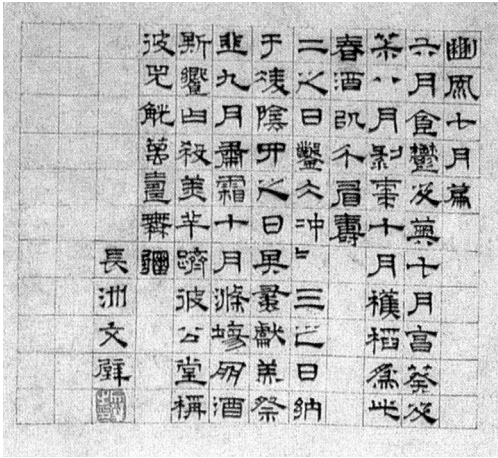 豳風七月篇
六月食鬱及薁七月亨葵及
菽八月剝棗十月穫稻為此
春酒以介眉壽
二之日鑿仌冲〻三之日納
于凌陰四之日其蚤獻羔祭
韭九月肅霜十月滌場朋酒
斯饗曰殺羔羊躋彼公堂稱
彼兕觥萬壽無疆
長洲文璧